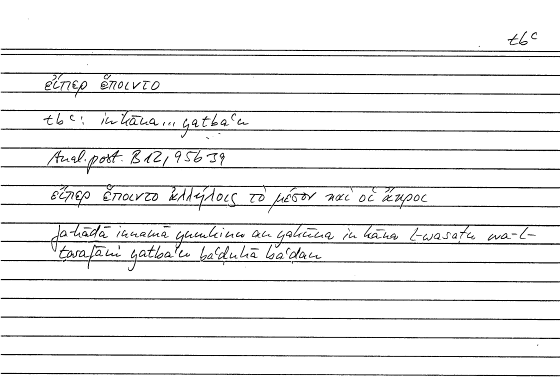 tbᶜ
εἴπερ ἕποιντο
tbᶜ: in kāna... yatbaᶜu
Anal. post. B 12, 95b39
εἴπερ ἕποιντο ἀλλήλοις τὸ μέσον καὶ οἱ ἄκροι
fa-hāḏā innamā yumkinu an yakūna in kāna l-wasaṭu wa-l-
ṭarafāni yatbaᶜu baᶜḍuhā baᶜḍan